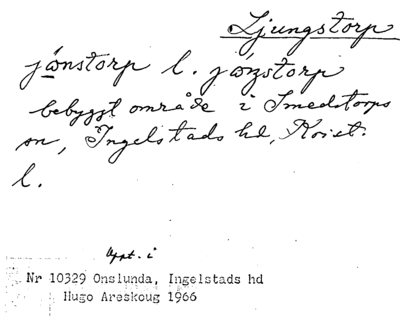 Ljungstorp
jönstorp l. jözstorp
bebyggt område i Smedstorps
sn, Ingelstads hd, Krist.
l.
Uppt. i
Nr 10329 Onslunda, Ingelstads hd
Hugo Areskoug 1966